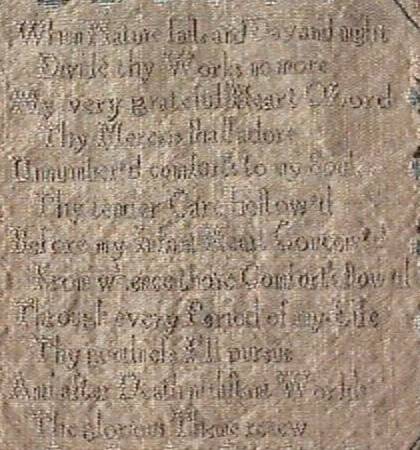 When Nature fails and Day and night
Divide thy Works no more
My very grateful Heart O Lord
Thy Mercies shall adore
Unnumber'd comforts to my Soul
Thy tender Care bestow'd
Before my infant Heart Conceiv'd
From whence those Comforts flow'd
Through every Period of my Life
Thy goodness I'll pursue
And after Death in distant Worlds
The glorious Theme renew